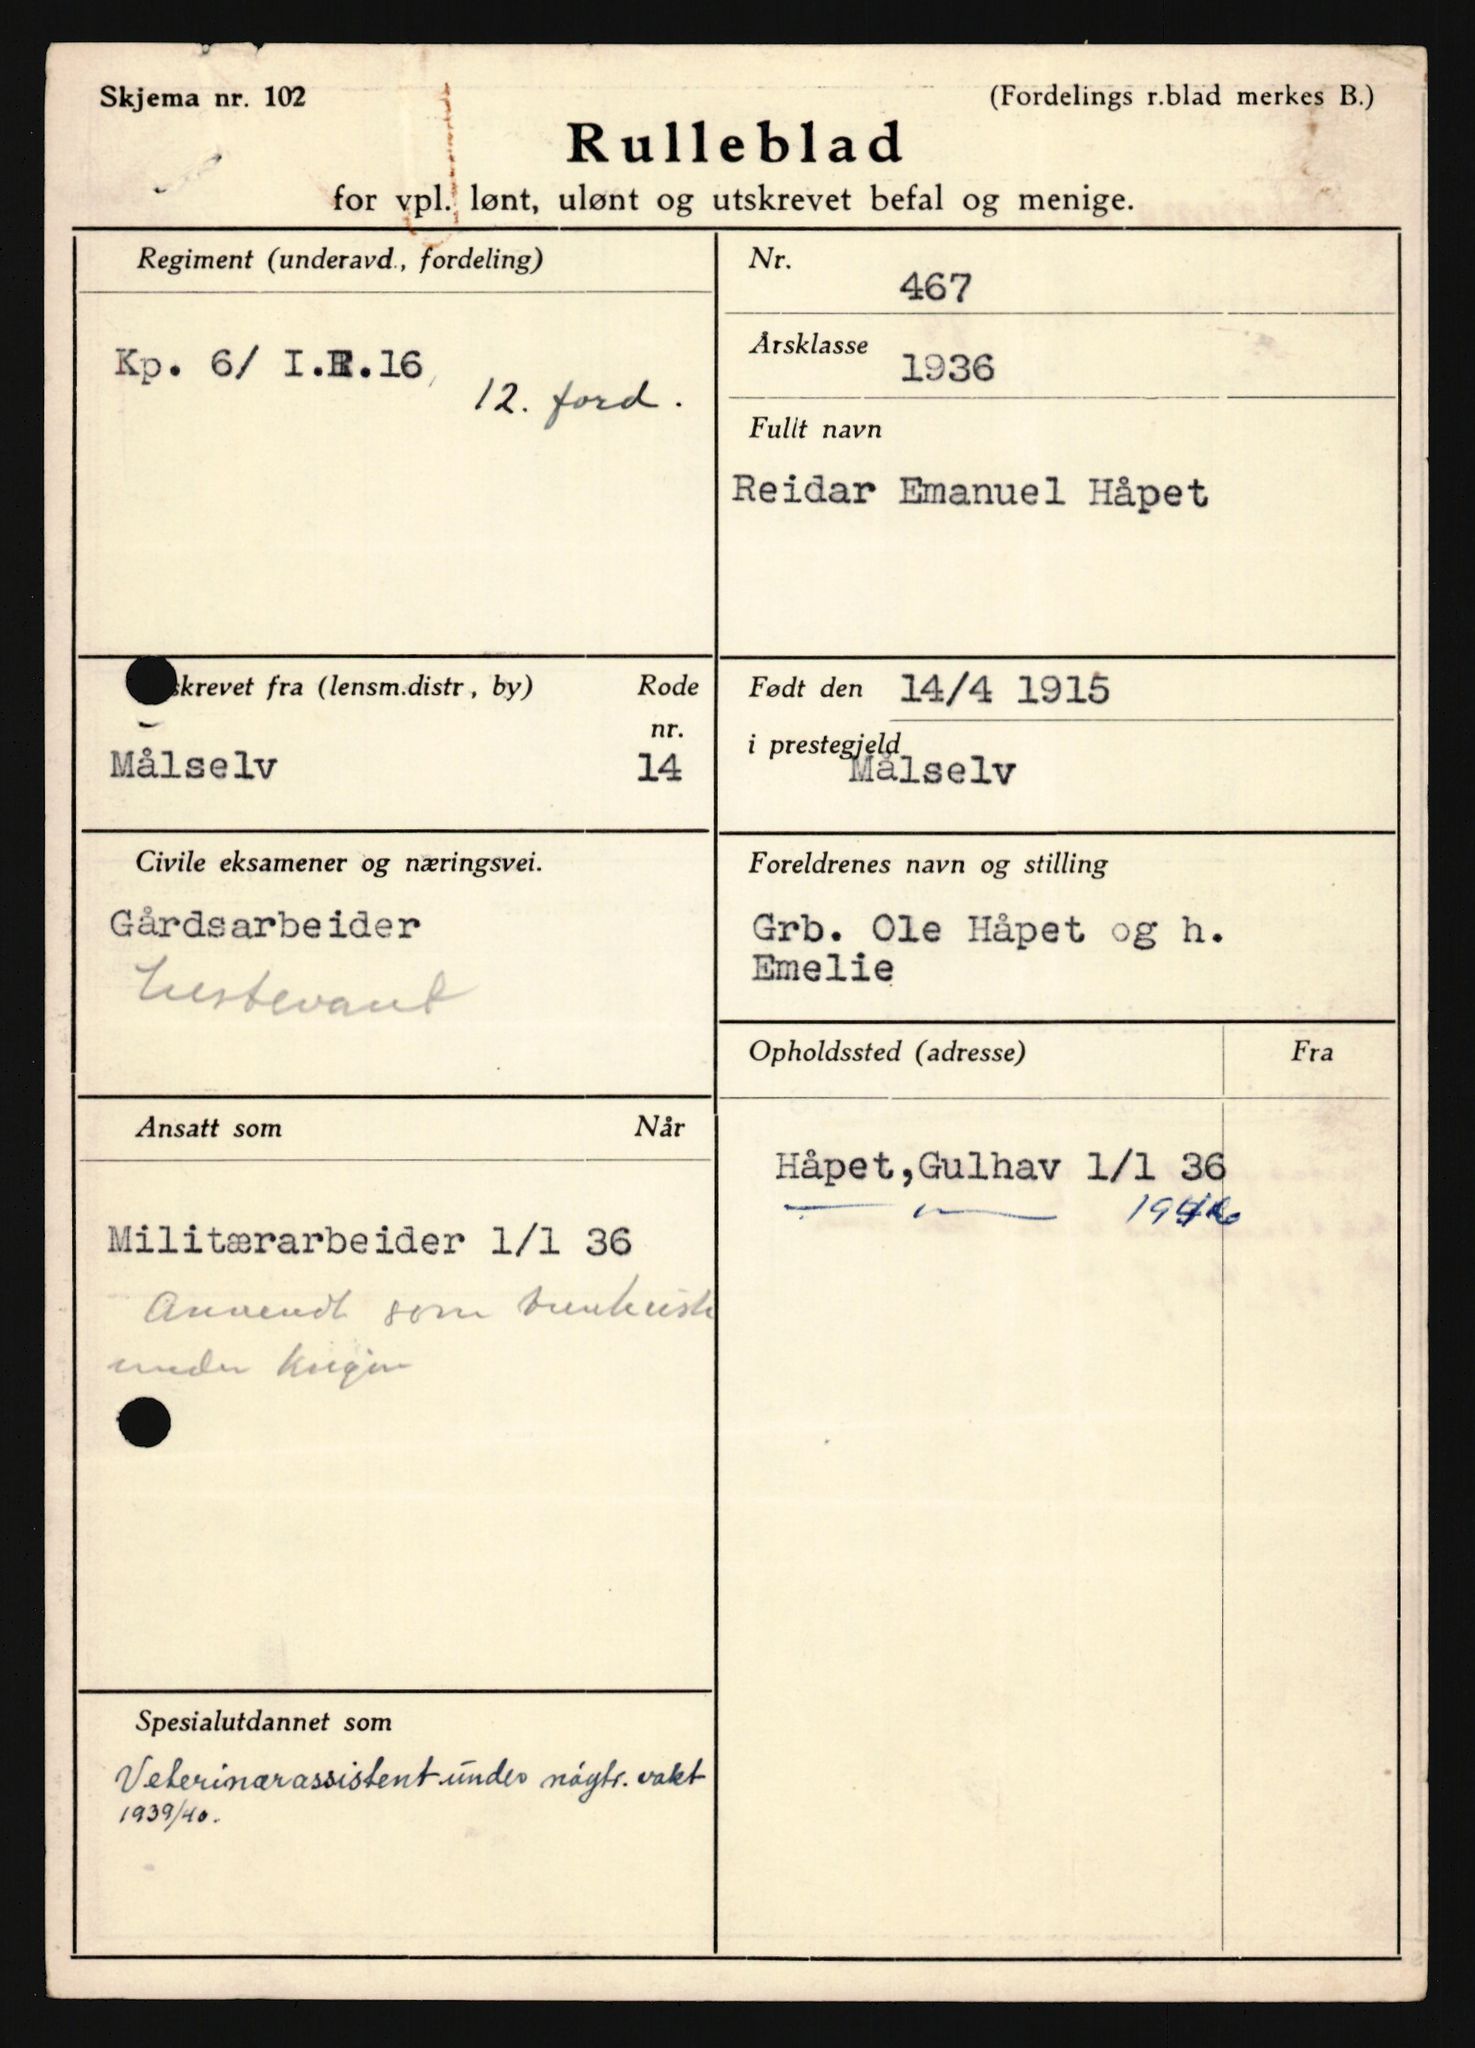 Skjema nr. 102
(Fordelings r.blad merkes B.)
Rulleblad
for vpl. lønt, ulønt og utskrevet befal og menige.
Regiment (underavd., fordeling)
Kp. 6/ I.R.16
12. ford.
Nr.
467
Årsklasse
1936
Fullt navn
Reidar Emanuel Håpet
skrevet fra (lensm.distr, by)
Rode
nr.
Målselv
14
Født den 14/4 1915
i prestegjeld
Målselv
Civile eksamener og næringsvei.
Gårdsarbeider
hestevant
Foreldrenes navn og stilling
Grb. Ole Håpet og h.
Emelie
Ansatt som
Når
Militærarbeider 1/1 36
Anvendt som
under krigen
Opholdssted (adresse)
Fra
Håpet,Gulhav 1/1 36
Spesialutdannet som
Veterinærassistent under nøytr. vakt
1939/40.